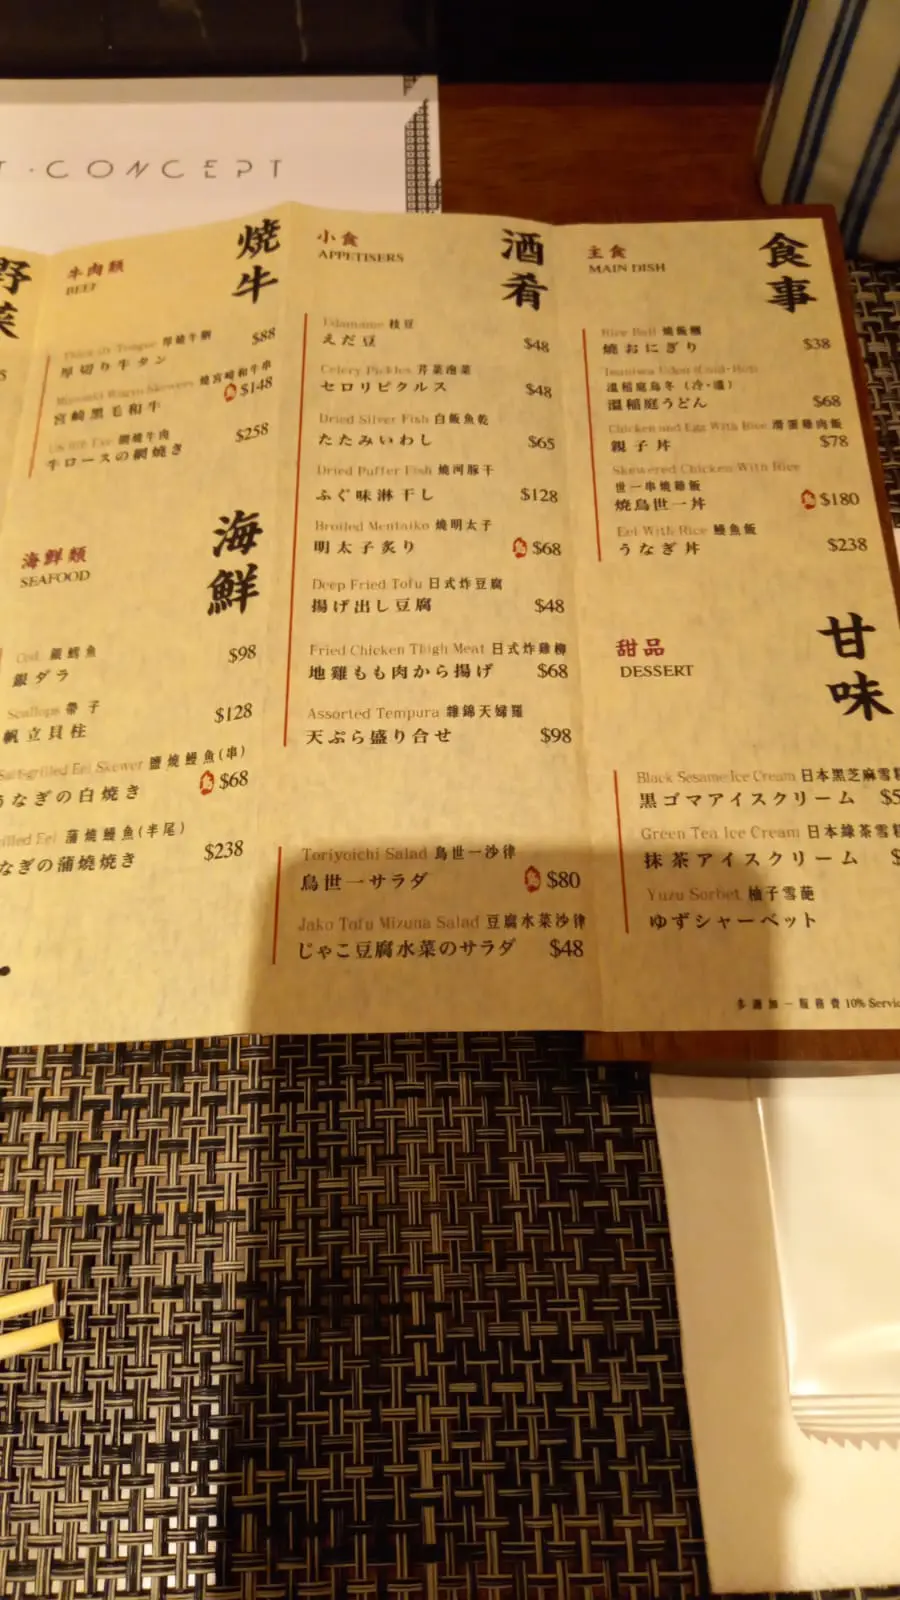 T·CONCEPT
野菜
牛肉類
BEEF
焼牛
Thick Ox Tongue 厚燒牛脷
厚切り牛タン $88
Miyazaki Wagyu Skewers 燒宮崎和牛串
宮崎黒毛和牛 $148
US Rib Eye 網燒牛肉
牛ロースの網焼き $258
海鮮類
SEAFOOD
海鮮
Cod 銀鱈魚
銀ダラ $98
Scallops 帶子
帆立貝柱 $128
Salt-grilled Eel Skewer 鹽燒鰻魚(串)
うなぎの白焼き $68
rilled Eel 蒲燒鰻魚(半尾)
なぎの蒲燒焼き $238
小食
APPETISERS
酒肴
Edamame 枝豆
えだ豆 $48
Celery Pickles 芹菜泡菜
セロリピクルス $48
Dried Silver Fish 白飯魚乾
たたみいわし $65
Dried Puffer Fish 燒河豚干
ふぐ味淋干し $128
Broiled Mentaiko 燒明太子
明太子炙り $68
Deep Fried Tofu 日式炸豆腐
揚げ出し豆腐 $48
Fried Chicken Thigh Meat 日式炸雞柳
地雞もも肉から揚げ $68
Assorted Tempura 雜錦天婦羅
天ぷら盛り合せ $98
Toriyoichi Salad 鳥世一沙律
鳥世一サラダ $80
Jako Tofu Mizuna Salad 豆腐水菜沙律
じゃこ豆腐水菜のサラダ $48
主食
MAIN DISH
食事
Rice Ball 燒飯糰
焼おにぎり $38
Inaniwa Udon (Cold·Hot)
溫稻庭烏冬（冷·溫）
温稲庭うどん $68
Chicken and Egg With Rice 滑蛋雞肉飯
親子丼 $78
Skewered Chicken With Rice
世一串燒雞飯
焼鳥世一丼 $180
Eel With Rice 鰻魚飯
うなぎ丼 $238
甜品
DESSERT
甘味
Black Sesame Ice Cream 日本黑芝麻雪糕
黒ゴマアイスクリーム $5
Green Tea Ice Cream 日本綠茶雪糕
抹茶アイスクリーム $
Yuzu Sorbet 柚子雪葩
ゆずシャーベット
多謝加一服務費 10% Servic